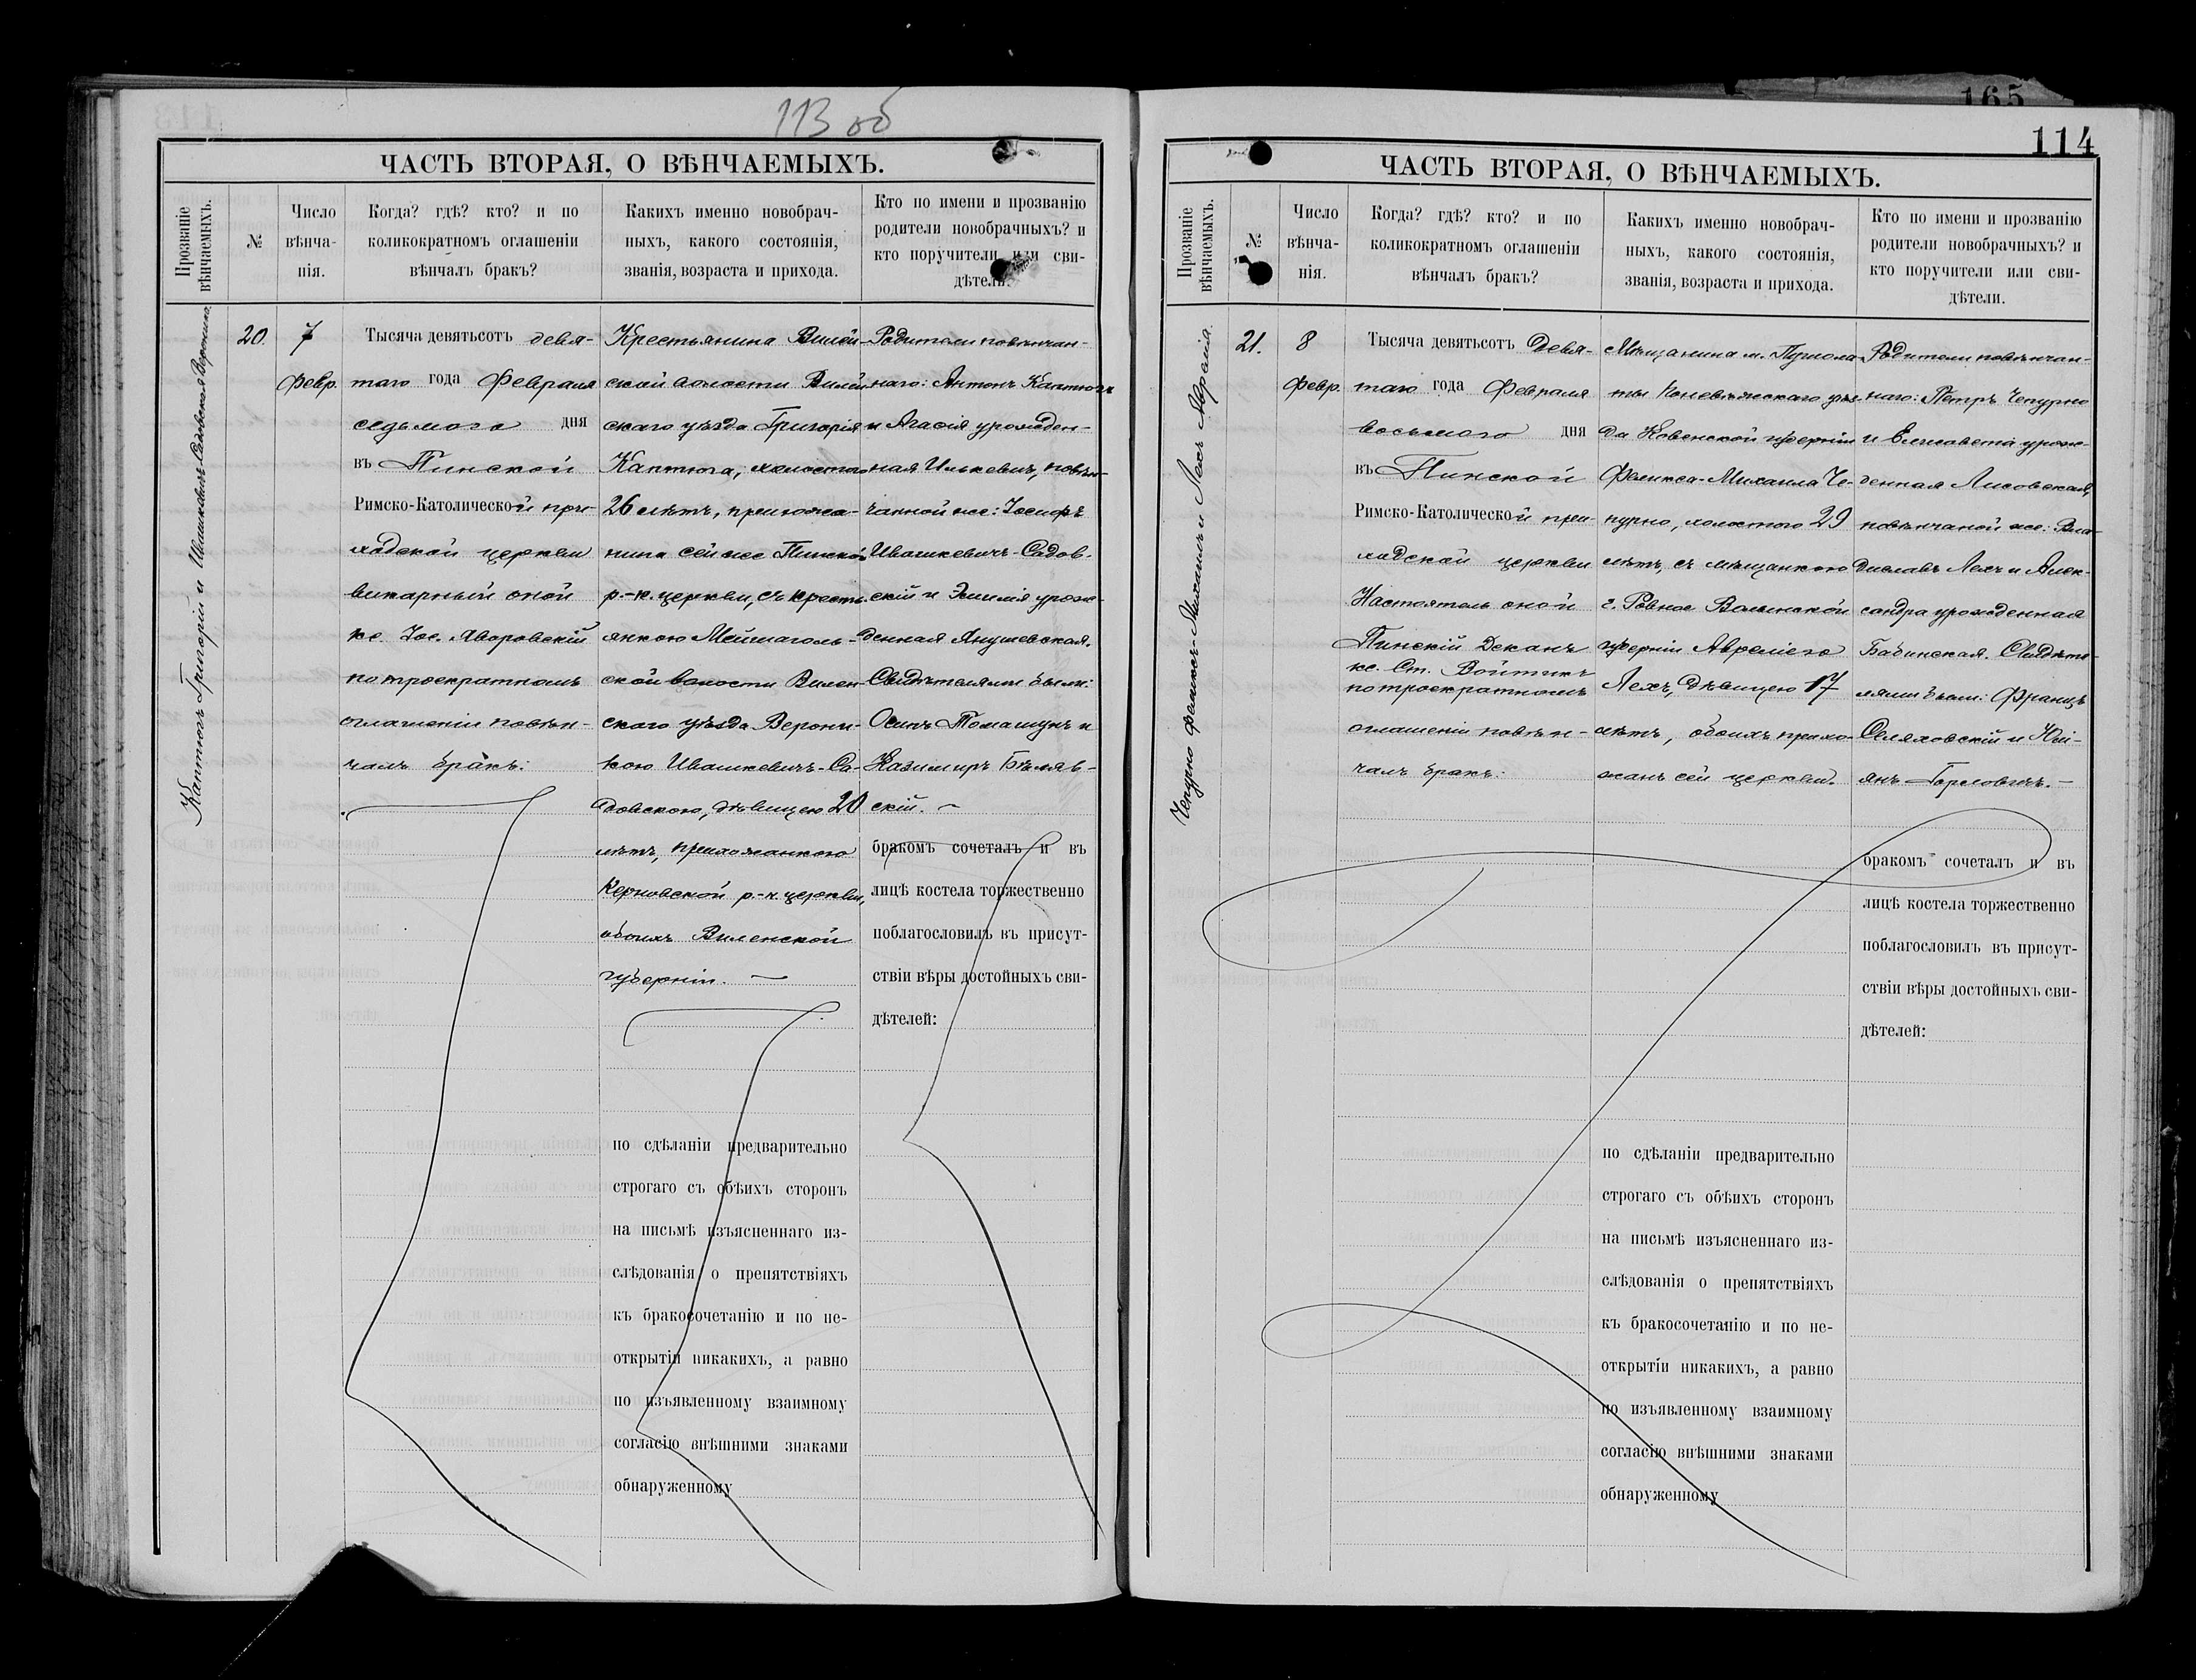 113 об
ЧАСТЬ ВТОРАЯ, О ВѢНЧАЕМЫХЪ.
Прозваніе вѣнчаемыхъ.
№
Число
вѣнча-
нія.
Когда? гдѣ? кто? и по
коликократномъ оглашеніи
вѣнчалъ бракъ?
Какихъ именно новобрач-
ныхъ, какого состоянія,
званія, возраста и прихода.
Кто по имени и прозванію
родители новобрачныхъ? и
кто поручители или сви-
дѣтели.
Каптюгъ Григорій и Ивашкевичъ-Садовская Вероника.
20.
7
Февр.
Тысяча девятьсотъ девя-
таго года Февраля
седьмого дня
въ Пинской
Римско-Католической при-
ходской церкви
викарный оной
кс. Іос. Яворовскій
по троекратномъ
оглашеніи повѣн-
чалъ бракъ:
Крестьянина Вилей-
ской волости Вилей-
скаго уѣзда Григорія
Каптюга, холостого
26 лѣтъ, прихожа-
нина сей же Пинской
р.-к. церкви, съ крестъ-
янкою Мейшаголь-
ской волости Вилен-
скаго уѣзда Верони-
кою Ивашкевичъ-Са-
довскою, дѣвицею 20
лѣтъ, прихожанкою
Керновской р.-к. церкви,
обоихъ Виленской
губерніи. —
по сдѣланіи предварительно
строгаго съ обѣихъ сторонъ
на письмѣ изъясненнаго из-
слѣдованія о препятствіяхъ
къ бракосочетанію и по не-
открытіи никакихъ, а равно
по изъявленному взаимному
согласію внѣшними знаками
обнаруженному
Родители повѣнчан-
наго: Антонъ Каптюгъ
и Агафія урожден-
ная Илькевичъ, повѣн-
чанной же: Іосифъ
Ивашкевичъ-Садов-
скій и Эмилія урож-
денная Янушевская.
Свидѣтелями были:
Осипъ Томашунъ и
Казимиръ Бѣляв-
скій. —
бракомъ сочеталъ и въ
лицѣ костела торжественно
поблагословилъ въ присут-
ствіи вѣры достойныхъ сви-
дѣтелей:
165
114
ЧАСТЬ ВТОРАЯ, О ВѢНЧАЕМЫХЪ.
Прозваніе вѣнчаемыхъ.
№
Число
вѣнча-
нія.
Когда? гдѣ? кто? и по
коликократномъ оглашеніи
вѣнчалъ бракъ?
Какихъ именно новобрач-
ныхъ, какого состоянія,
званія, возраста и прихода.
Кто по имени и прозванію
родители новобрачныхъ? и
кто поручители или сви-
дѣтели.
Чепурно Феликсъ-Михаилъ и Лехъ Аврелія.
21.
8
Февр.
Тысяча девятьсотъ девя-
таго года Февраля
восьмого дня
въ Пинской
Римско-Католической при-
ходской церкви
Настоятель оной
Пинскій Деканъ
кс. Ст. Войтикъ
по троекратномъ
оглашеніи повѣн-
чалъ бракъ:
Мѣщанина м.
уѣз-
да Ковенской губерніи
Феликса-Михаила Че-
пурно, холостого 29
лѣтъ, съ мѣщанкою
г. Ровное Волынской
губерніи Авреліею
Лехъ, дѣвицею 17
лѣтъ, обоихъ прихо-
жанъ сей церкви.
по сдѣланіи предварительно
строгаго съ обѣихъ сторонъ
на письмѣ изъясненнаго из-
слѣдованія о препятствіяхъ
къ бракосочетанію и по не-
открытіи никакихъ, а равно
по изъявленному взаимному
согласію внѣшними знаками
обнаруженному
Родители повѣнчан-
наго: Петръ Чепурно
и Елисавета урож-
денная Лисовская,
повѣнчаной же: Вла-
диславъ Лехъ и Алек-
сандра урожденная
Бабинская. Свидѣте-
лями были: Францъ
Селяховскій и Юлі-
янъ —
бракомъ сочеталъ и въ
лицѣ костела торжественно
поблагословилъ въ присут-
ствіи вѣры достойныхъ сви-
дѣтелей: